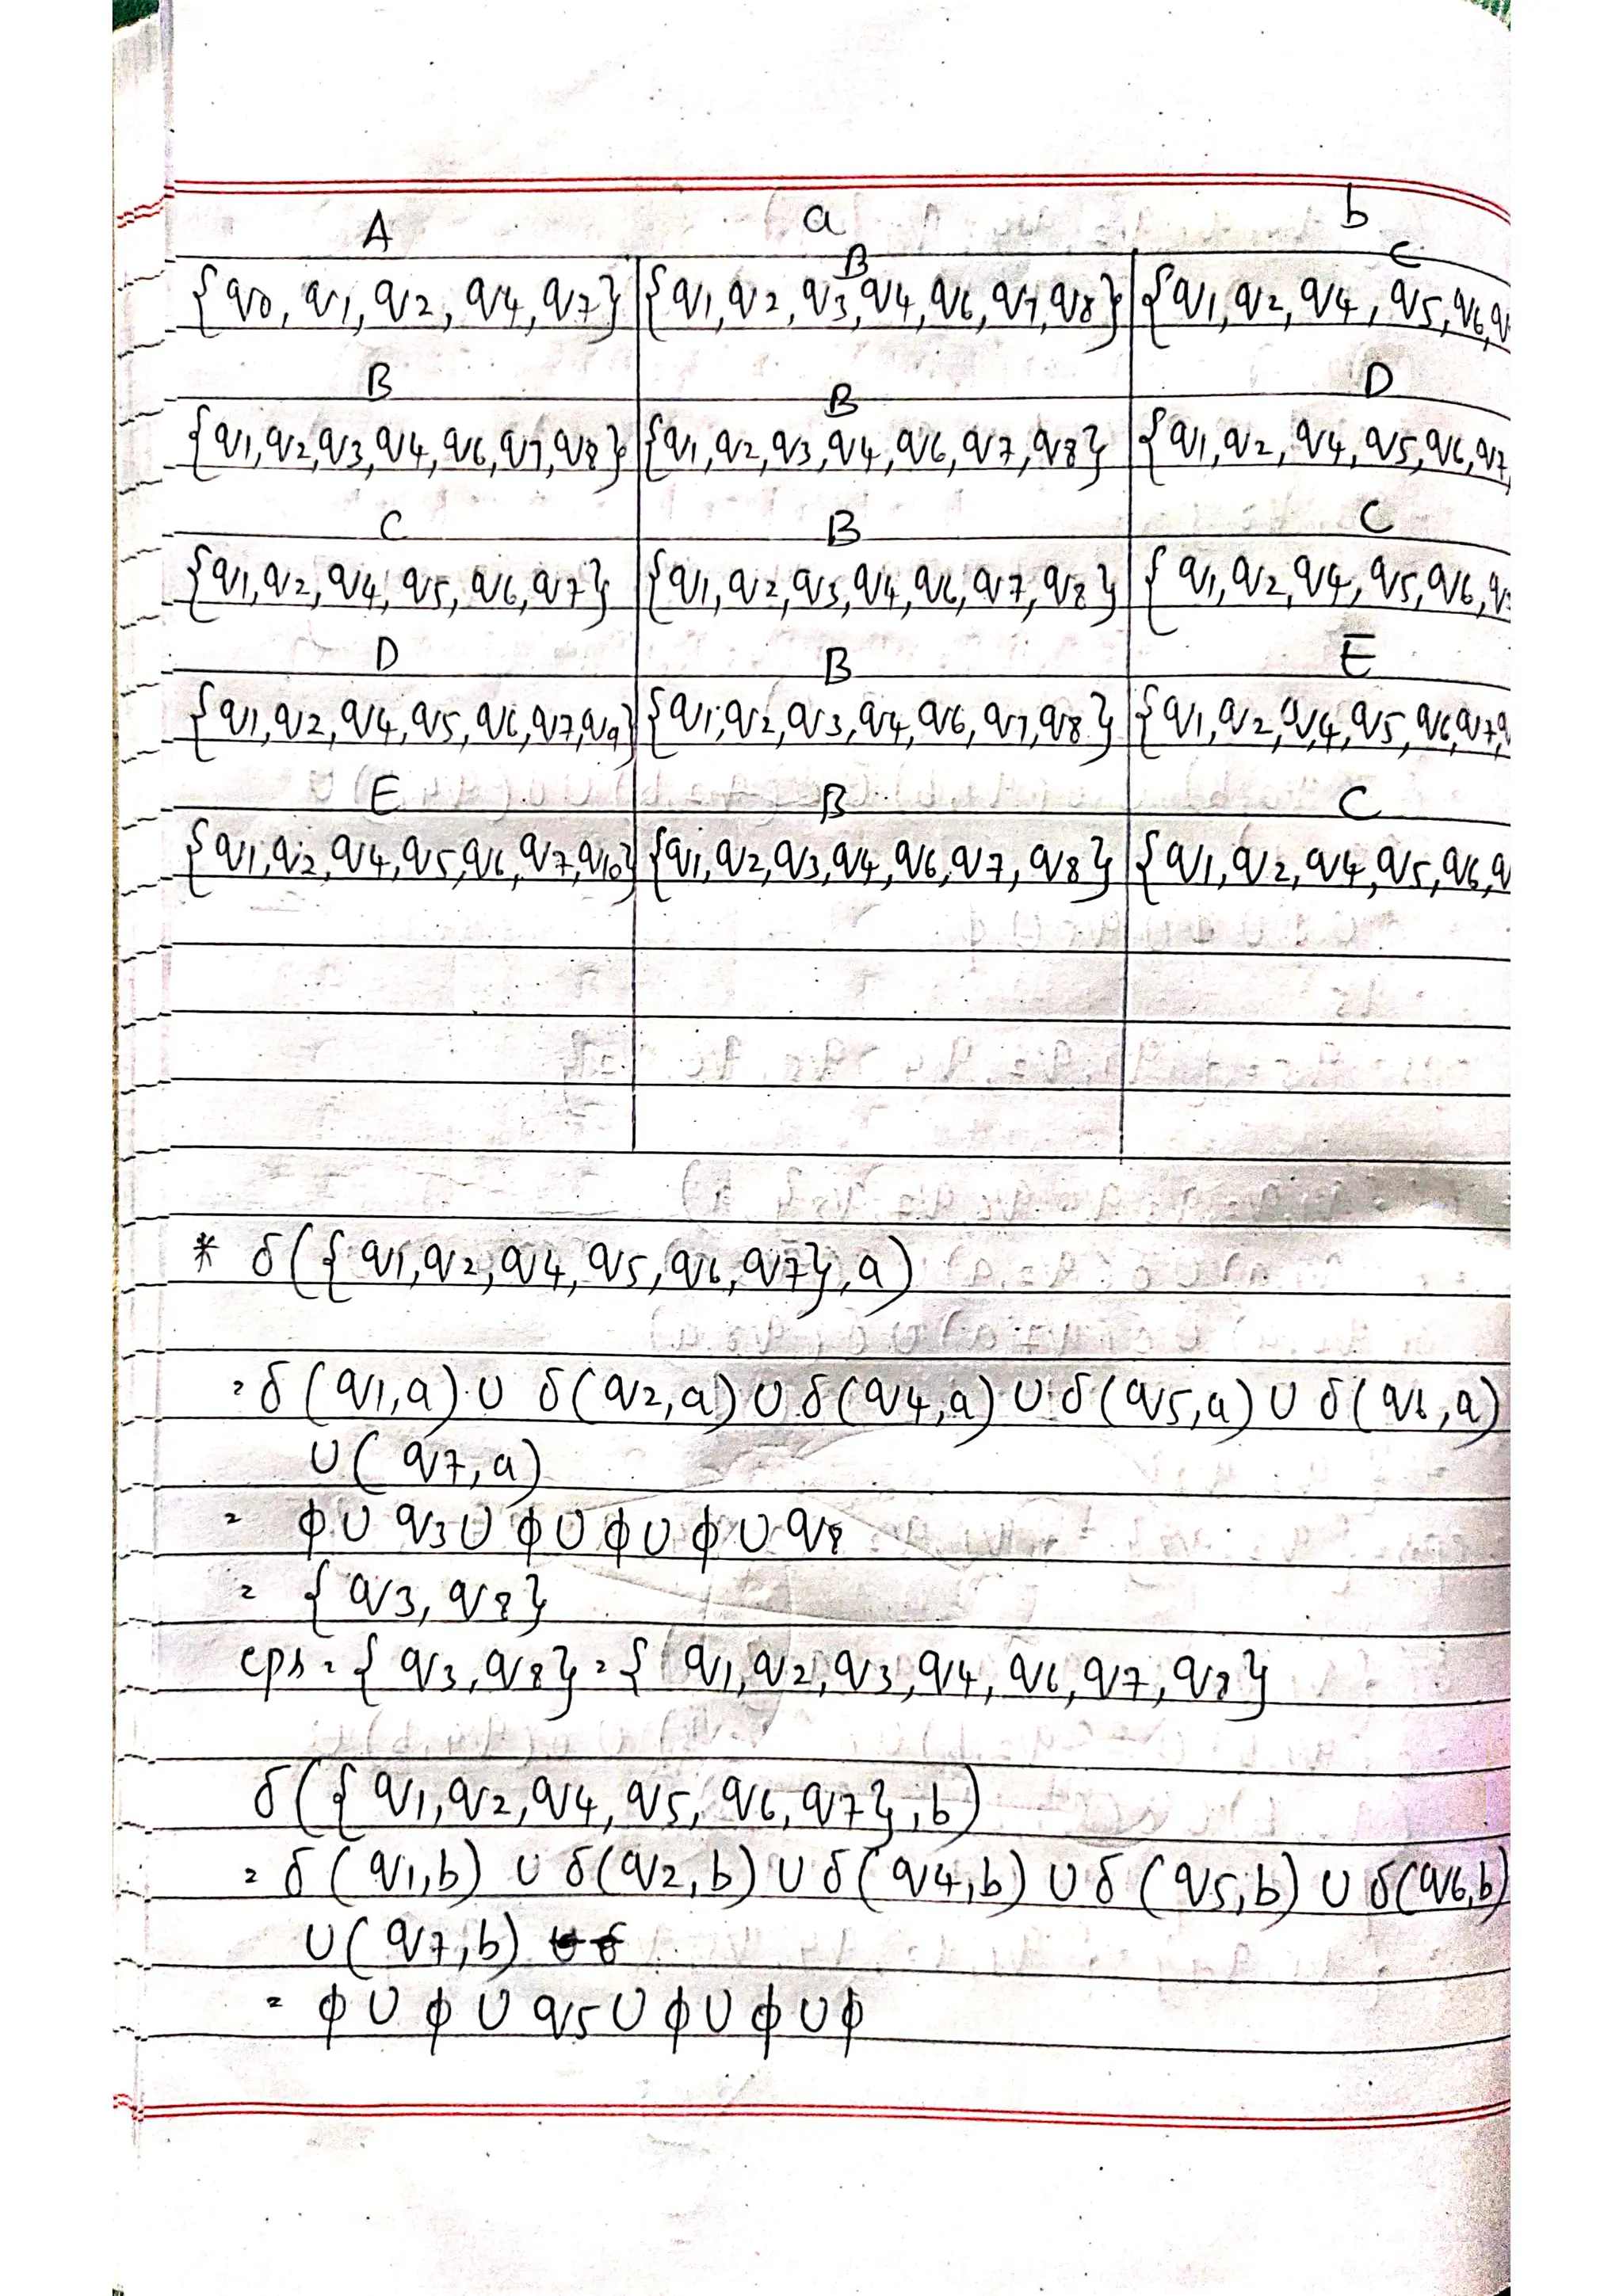 A a b
B C
{q0, q1, q2, q4, q7} {q1, q2, q3, q4, q6, q7, q8} {q1, q2, q4, q5, q6, q
B B D
{q1, q2, q3, q4, q6, q7, q8} {q1, q2, q3, q4, q6, q7, q8} {q1, q2, q4, q5, q6, q7,
C B C
{q1, q2, q4, q5, q6, q7} {q1, q2, q3, q4, q6, q7, q8} {q1, q2, q4, q5, q6, q
D B E
{q1, q2, q4, q5, q6, q7, q9} {q1, q2, q3, q4, q6, q7, q8} {q1, q2, q4, q5, q6, q7, q
E B C
{q1, q2, q4, q5, q6, q7, q10} {q1, q2, q3, q4, q6, q7, q8} {q1, q2, q4, q5, q6, q
* δ({q1, q2, q4, q5, q6, q7}, a)
= δ(q1, a) ∪ δ(q2, a) ∪ δ(q4, a) ∪ δ(q5, a) ∪ δ(q6, a)
∪(q7, a)
= ϕ ∪ q3 ∪ ϕ ∪ ϕ ∪ ϕ ∪ q8
= {q3, q8}
eps = {q3, q8} = {q1, q2, q3, q4, q6, q7, q8}
δ({q1, q2, q4, q5, q6, q7}, b)
= δ(q1, b) ∪ δ(q2, b) ∪ δ(q4, b) ∪ δ(q5, b) ∪ δ(q6, b)
∪(q7, b)
= ϕ ∪ ϕ ∪ q5 ∪ ϕ ∪ ϕ ∪ ϕ